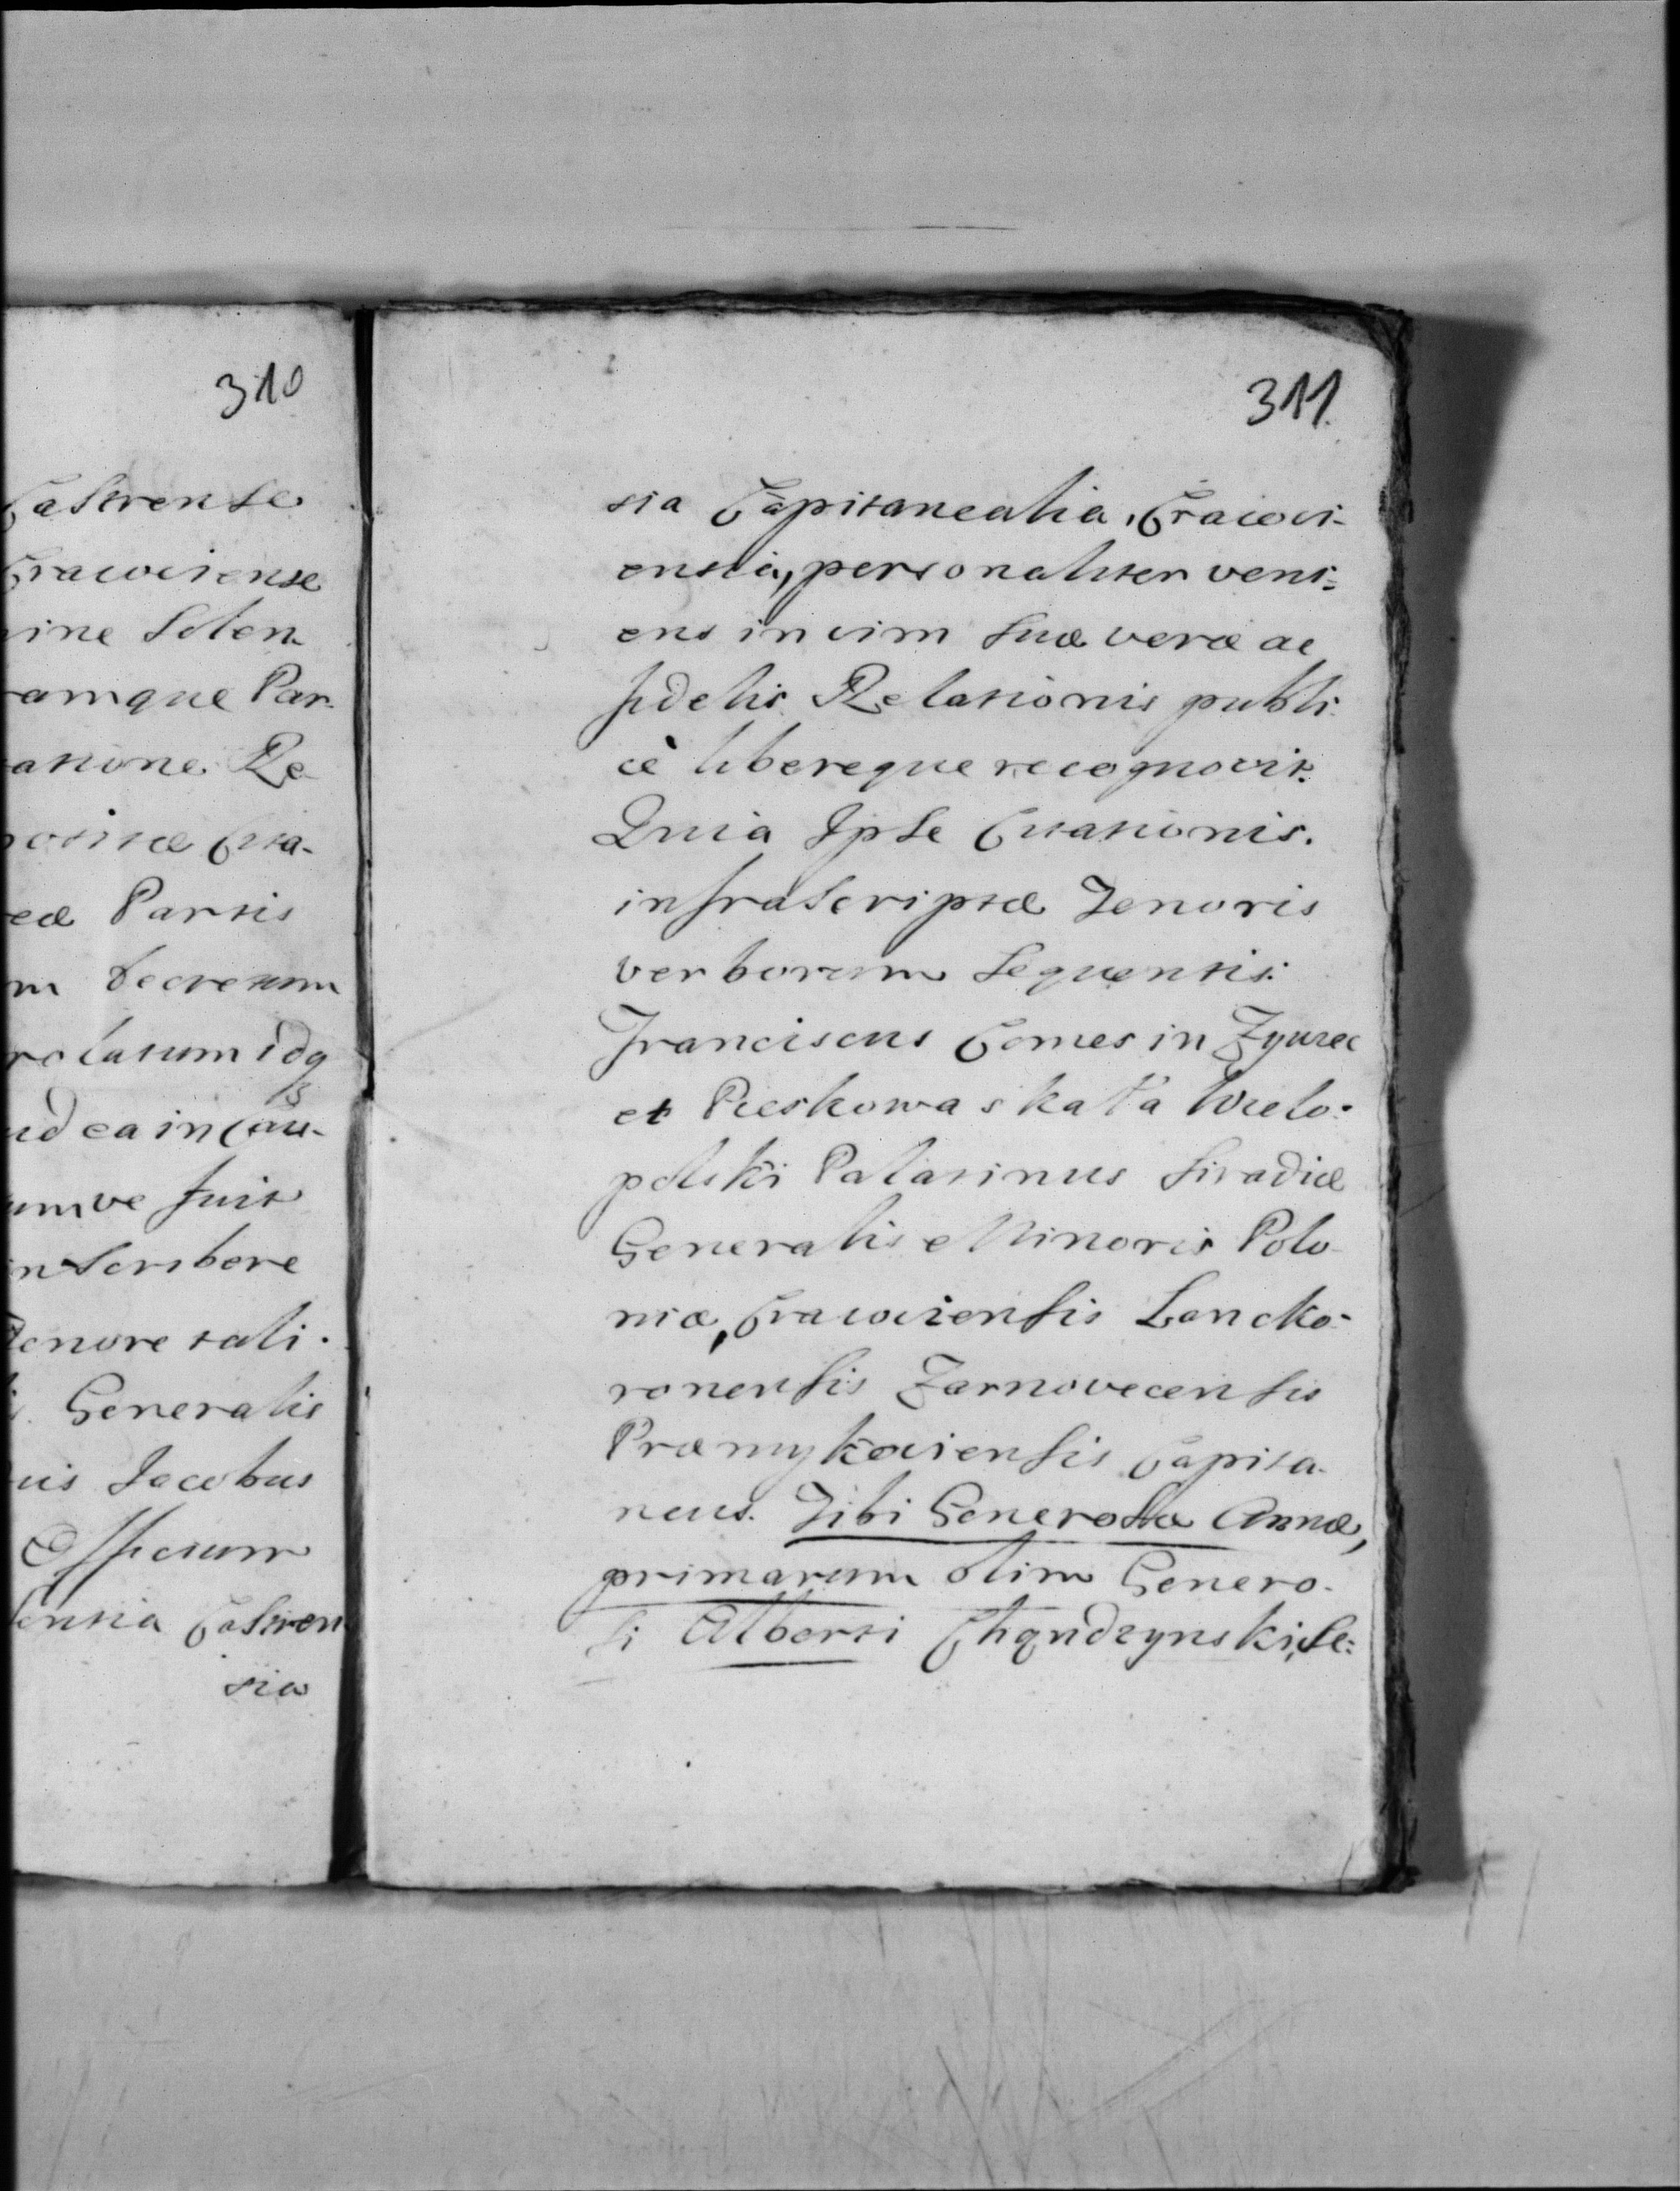 310
Castrense
Cracoviense
ine Solen
amque Par-
atione Re
positæ Cita-
eæ Partis
m Decretum
rolatum idq
ud ea in Cau-
umve fuit
nscribere
Tenore tali.
Generalis
uis Jacobus
Officium
entia Castren
sia
311.
sia Capitanealia, Cracovi-
ensia, personaliter veni=
ens in vim suæ veræ ac
fidelis Relationis publi-
cè libereque recognovit.
Quia Ipse Citationis.
infrascriptæ Tenoris
verborum Sequentis:
Franciscus Comes in Zywiec
et Pieskowa skała Wielo-
polski Palatinus Siradiæ
Generalis Minoris Polo-
niæ, Cracoviensis Lancko-
ronensis Zarnovecensis
Præmykoviensis Capita-
neus. Tibi Generosæ Annæ,
primarum olim Genero-
si Alberti Chądzynski, Se=